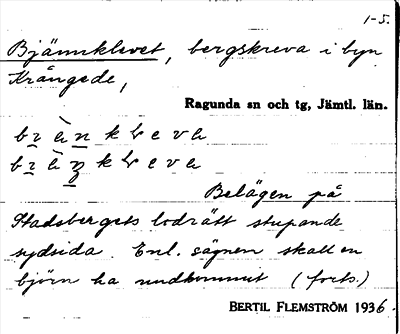 1-5.
Bjännklevet, bergskreva i byn
Krångede,
Ragunda sn och tg, Jämtl. län.
Belägen på
Stadsbergets lodrätt stupande
sydsida. Enl. sägnen skall en
björn ha undkommit (forts.)
BERTIL FLEMSTRÖM 1936.